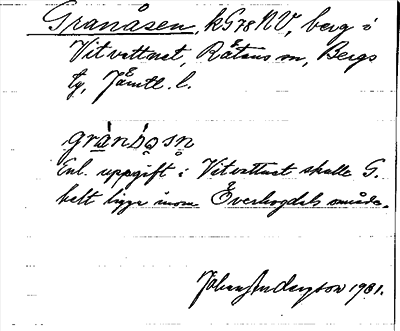 Granåsen, kG78NV, berg i
Vitvattnet, Rätans sn, Bergs
tg, Jämtl. l.
granåsn
Enl. uppgift i Vitvattnet skulle G.
helt ligga inom Överhogdals område.
Johan Anderzson 1981.